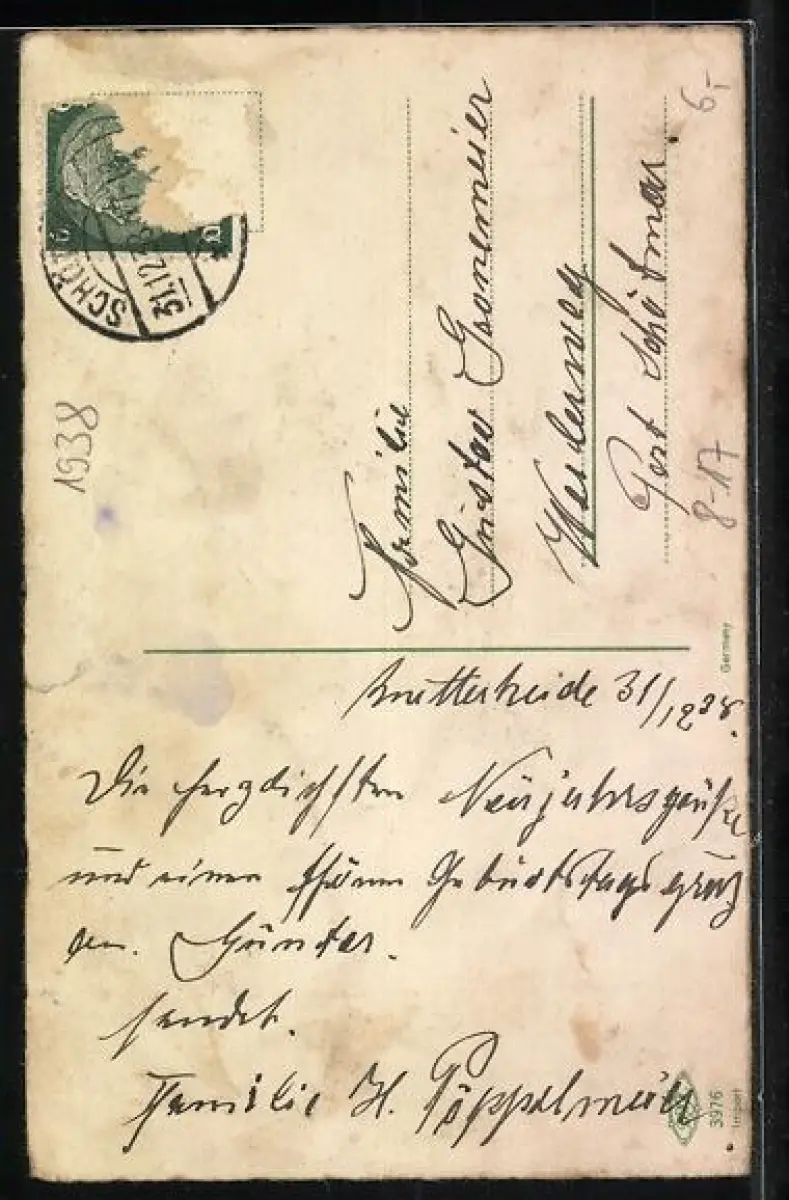 Familie
Gustav
Post Schötmar.
31/12 38.
Die herzlichsten Neujahrsgrüße
und einen schönen Geburtstagsgruß
an. Günter.
sendet.
Familie H.
1938
31.12.
6
6,-
8-17
Germany
3976
Import